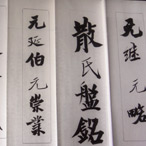 元继元畧
散氏盤銘
元延伯元崇業